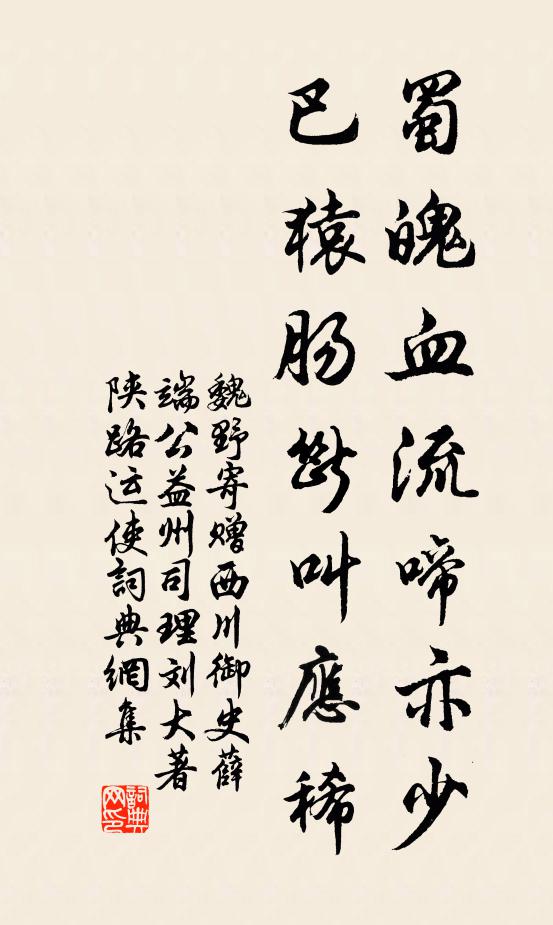 蜀魄血流啼亦少
巴猿肠断叫應稀
魏野寄赠西川御史薛
端公益州司理刘大著
陕路运使詞典網集
詞典
网印